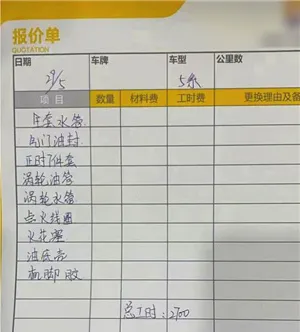 报价单
QUOTATION
日期 车牌 车型 公里数
29/5 5系
项目 数量 材料费 工时费 更换理由及备
年套水管
气门油封
正时7件套
涡轮油管
涡轮水管
点火线圈
火花塞
油底壳
机脚胶
总工时:2700